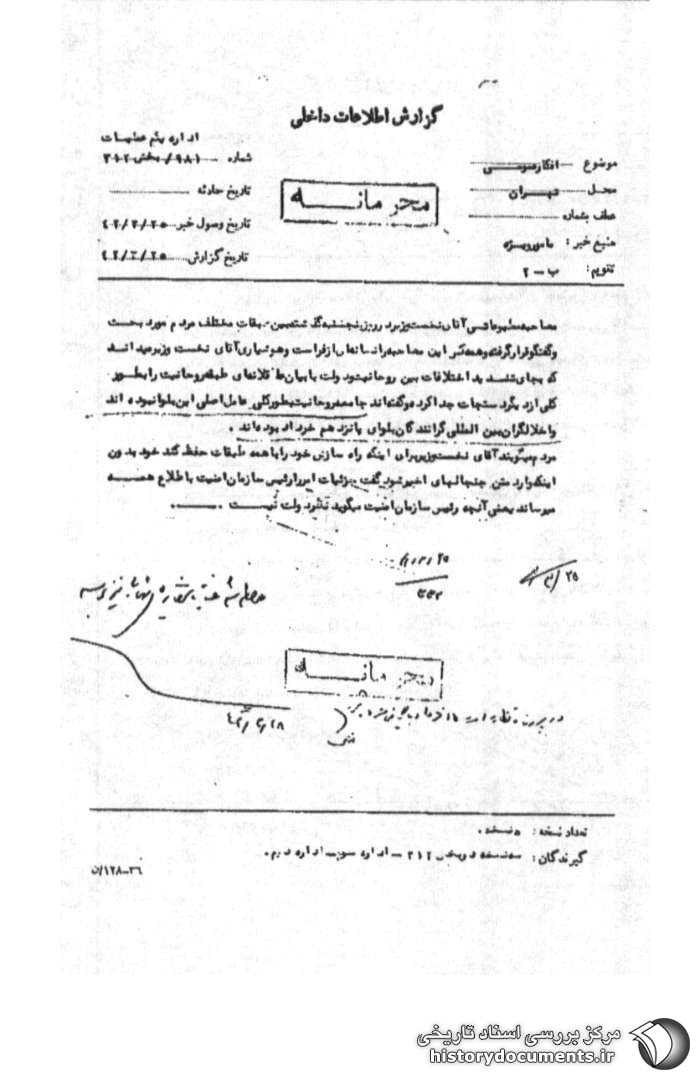 گزارش اطلاعات داخلی
موضوع افکار عمومی
محل تهران
عطف بشماره
منبع خبر : مامور ویژه
تقویم : ب – ۲
محرمانه
اداره یکم عملیات
شماره ۹۸۱/ بخش ۳۱۲
تاریخ حادثه
تاریخ وصول خبر ۴۲/۳/۲۵
تاریخ گزارش ۴۲/۳/۲۵
مصاحبه مطبوعاتی آقای نخست وزیر در روز پنجشنبه گذشته بین طبقات مختلف مردم مورد بحث
و گفتگو قرار گرفته و همه کس این مصاحبه را نشانه‌ای از فراست و هوشیاری آقای نخست وزیر میدانند
که بجای تشدید اختلافات بین روحانیت و دولت با بیان عاقلانه‌ای طبقه روحانیت را بطور
کلی از دیگر دستجات جدا کرده و گفته‌اند جامعه روحانیت بطور کلی عامل اصلی این بلوا نبوده اند
و اخلالگران بین المللی گرانندگان بلوای پانزدهم خرداد بوده‌اند .
مردم میگویند آقای نخست وزیر برای اینکه راه سازش خود را با همه طبقات حفظ کند خود بدون
اینکه وارد متن جنجالهای اخیر شود گفت جزئیات امر را رئیس سازمان امنیت باطلاع همه
میرساند یعنی آنچه رئیس سازمان امنیت میگوید نظر دولت نیست .
۲۵/۳
محرمانه
۴۲/۳/۲۸
تعداد نسخه : ۵ نسخه .
گیرندگان : سه نسخه در بخش ۳۱۲ – اداره سوم – اداره دوم .
۳۶–۱۲۸/ن
مرکز بررسی اسناد تاریخی
historydocuments.ir